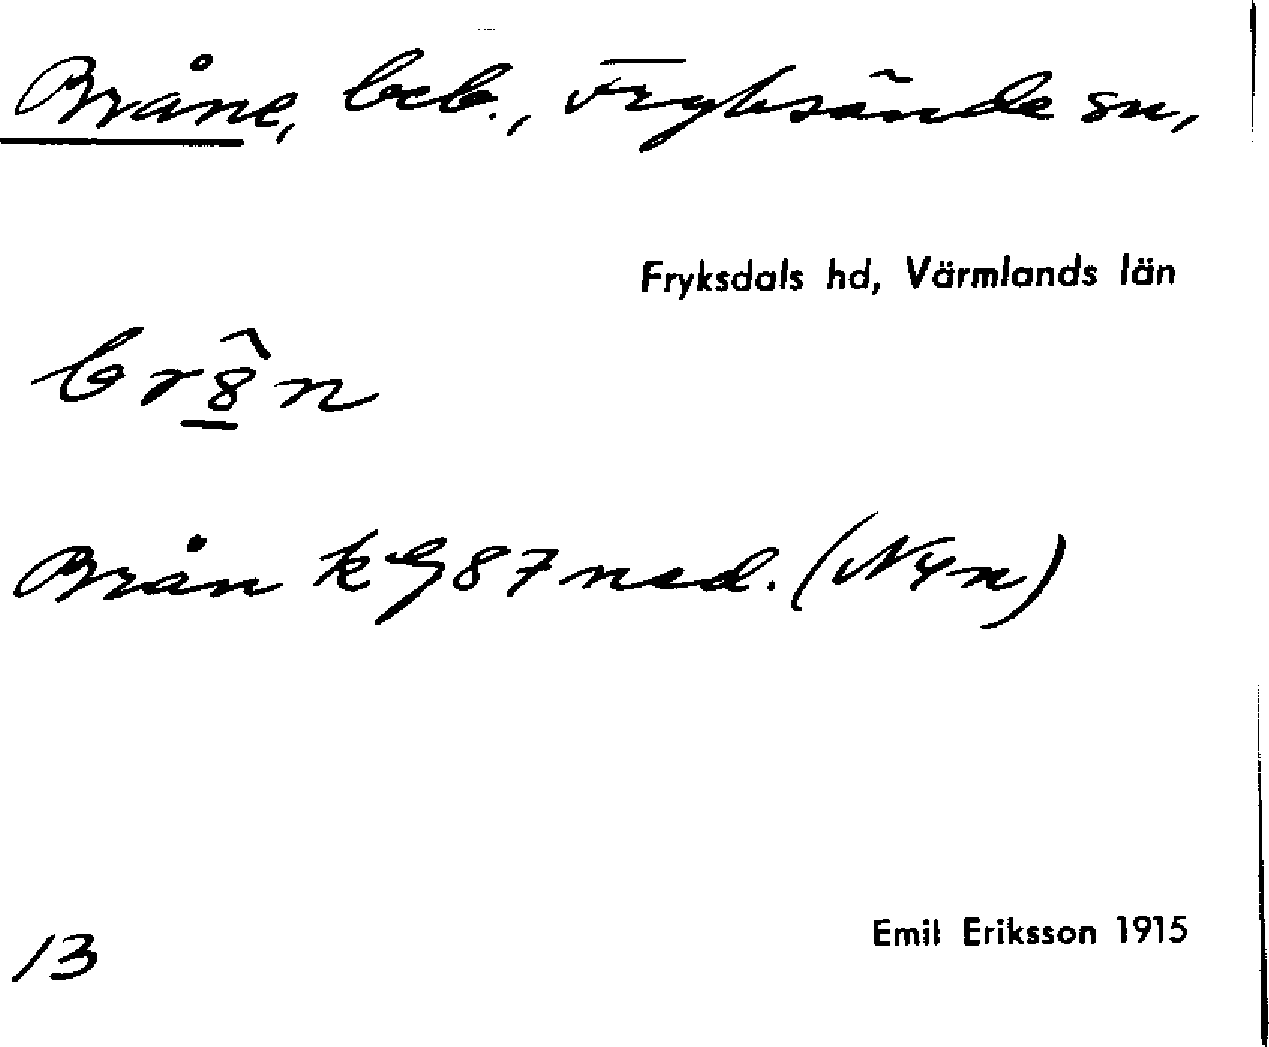 Bråne, beb., Fryksände sn,
Fryksdals hd, Värmlands län
br8̲̂n
Brån k G 87 ned. (N4n)
Emil Eriksson 1915
13